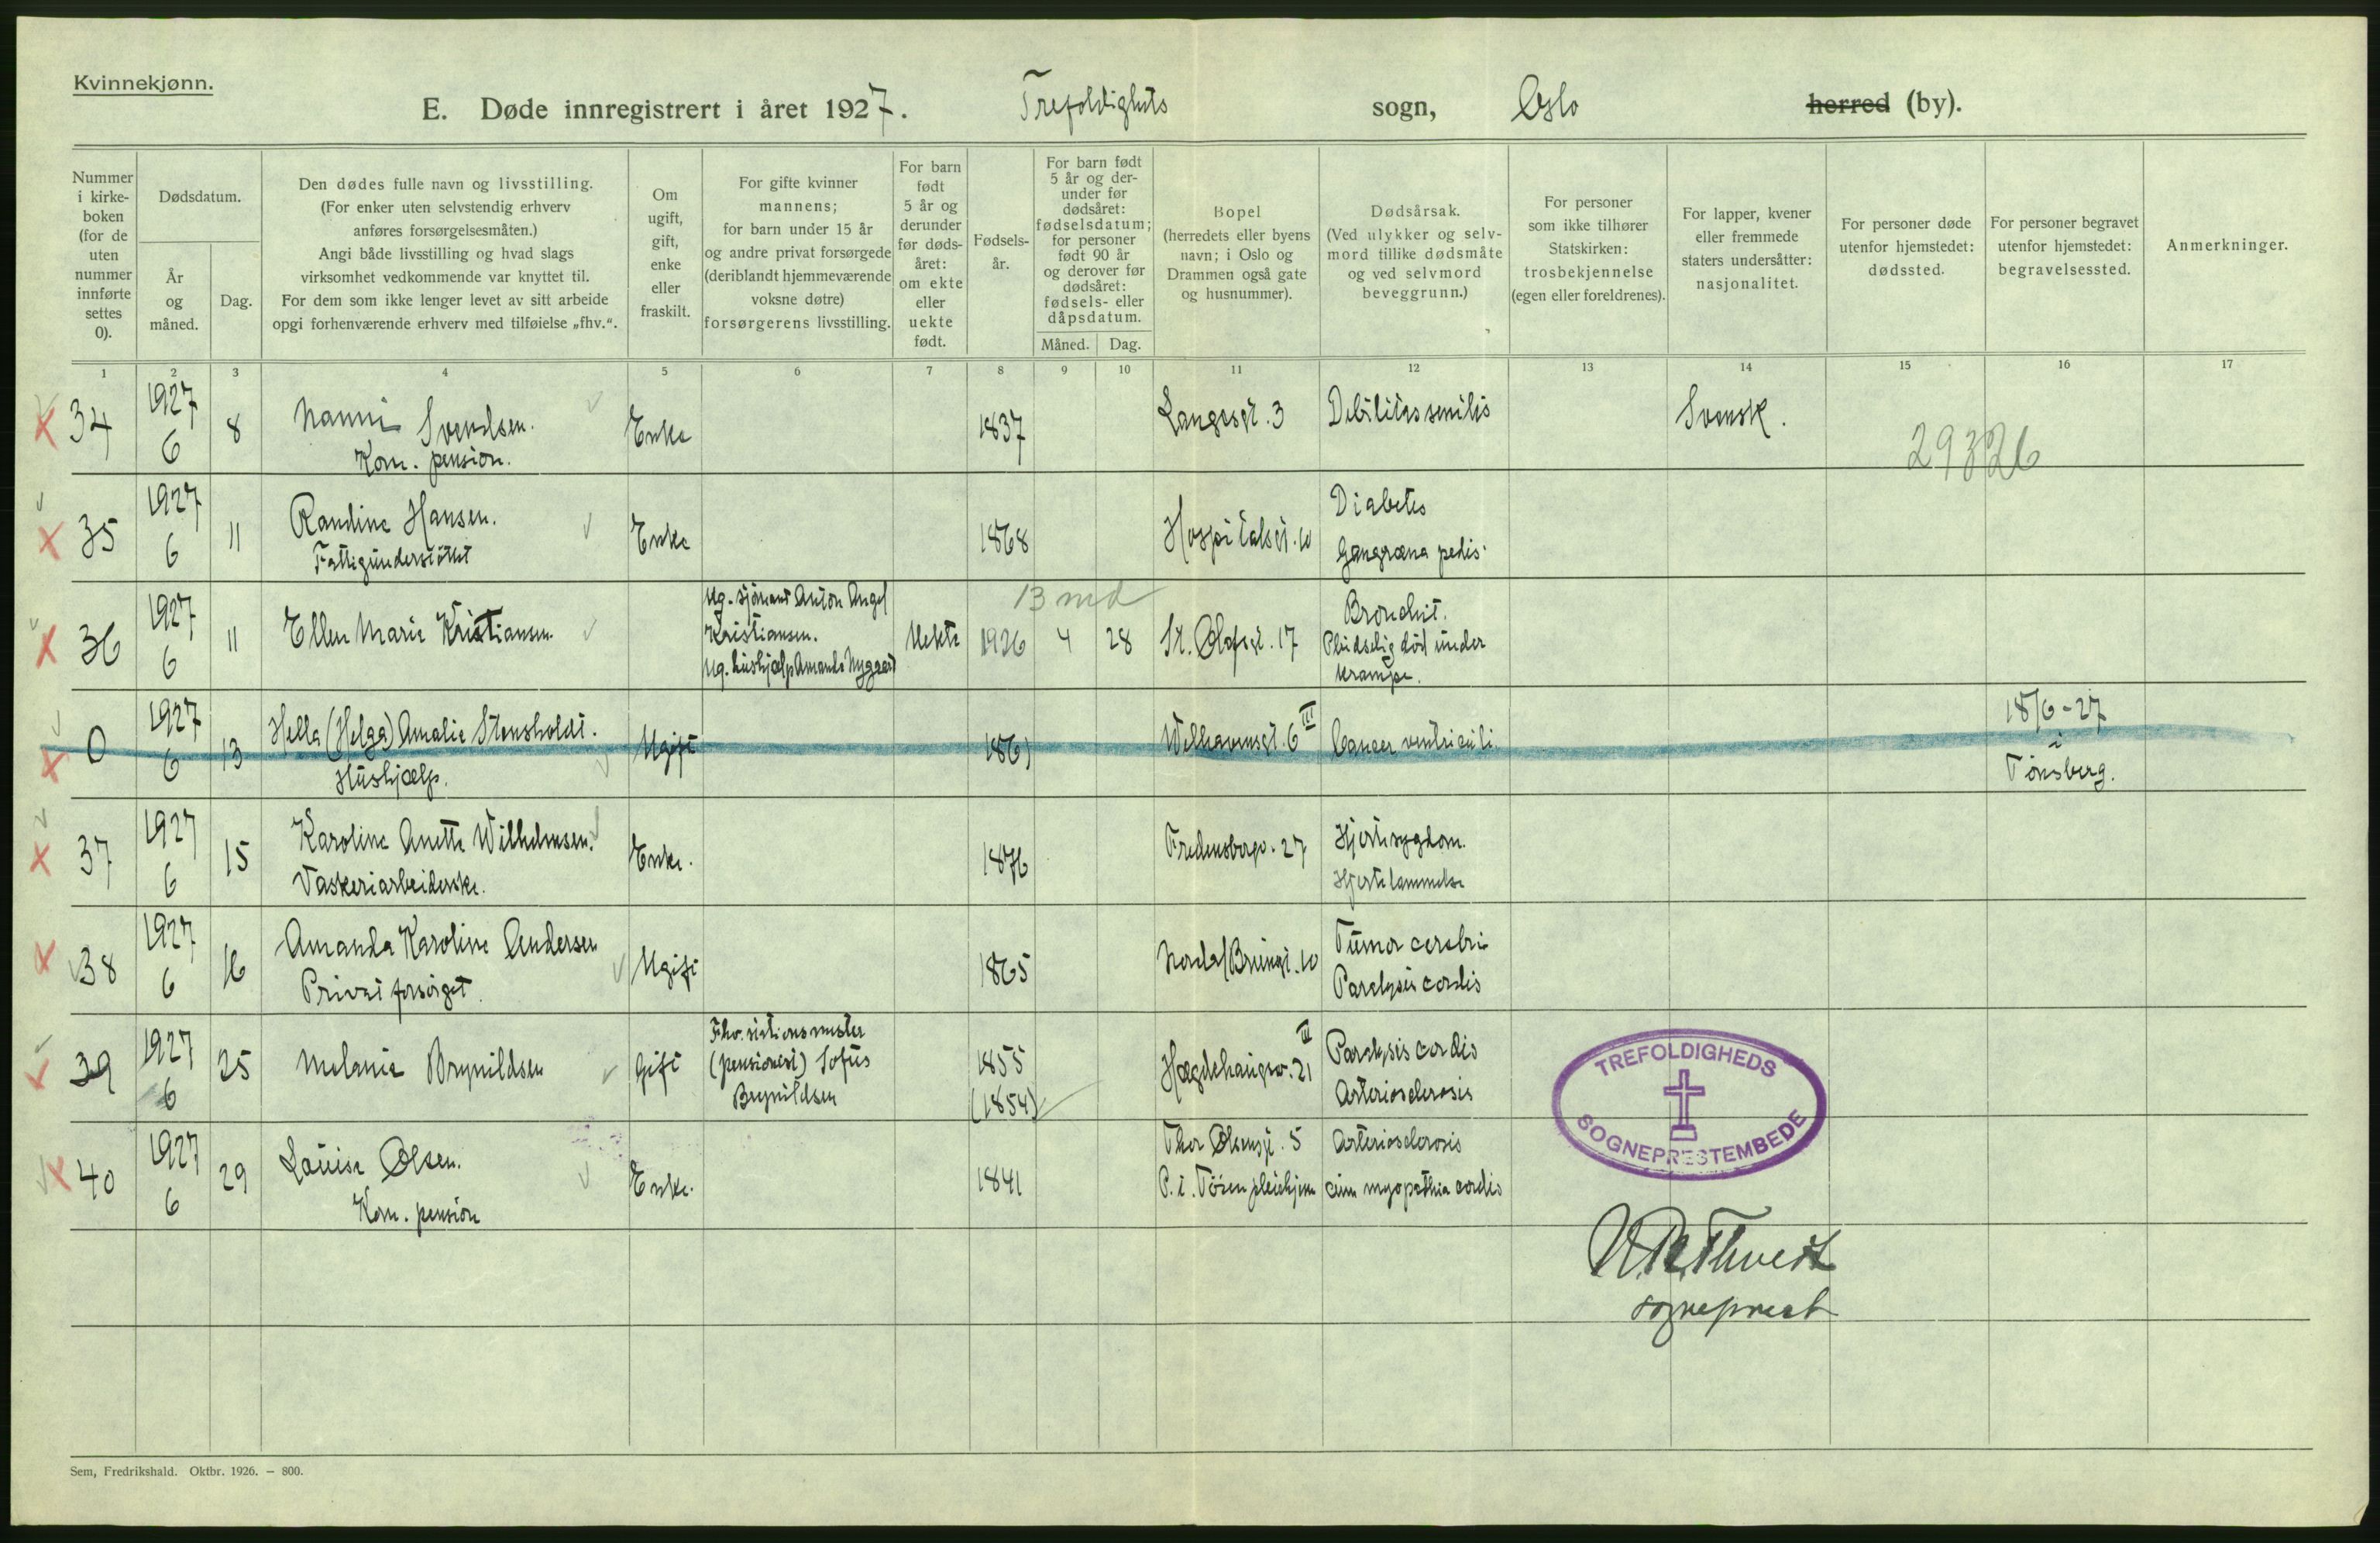 Kvinnekjønn.
E. Døde innregistrert i året 1927. Trefoldighets sogn, Oslo herred (by).
Nummer i kirke-boken (for de uten nummer innførte settes 0).
Dødsdatum.
År og måned.
Dag.
Den dødes fulle navn og livsstilling.
(For enker uten selvstendig erhverv
anføres forsørgelsesmåten.)
Angi både livsstilling og hvad slags
virksomhet vedkommende var knyttet til.
For dem som ikke lenger levet av sitt arbeide
opgi forhenværende erhverv med tilføielse „fhv.“.
Om ugift, gift, enke eller fraskilt.
For gifte kvinner
mannens;
for barn under 15 år
og andre privat forsørgede
(deriblandt hjemmeværende
voksne døtre)
forsørgerens livsstilling.
For barn født 5 år og derunder før døds-året: om ekte eller uekte født.
Fødsels-år.
For barn født
5 år og der-
under før
dødsåret:
fødselsdatum;
for personer
født 90 år
og derover før
dødsåret:
fødsels- eller
dåpsdatum.
Måned. Dag.
Bopel
(herredets eller byens
navn; i Oslo og
Drammen også gate
og husnummer).
Dødsårsak.
(Ved ulykker og selv-
mord tillike dødsmåte
og ved selvmord
beveggrunn.)
For personer
som ikke tilhører
Statskirken:
trosbekjennelse
(egen eller foreldrenes).
For lapper, kvener
eller fremmede
staters undersåtter:
nasjonalitet.
For personer døde
utenfor hjemstedet:
dødssted.
For personer begravet
utenfor hjemstedet:
begravelsessted.
Anmerkninger.
1 2 3 4 5 6 7 8 9 10 11 12 13 14 15 16 17
34 1927 6 8 Nanni Svendsen. Enke 1837 Langesgt. 3 Debilitas senilis Svensk.
Kom. pension.
29326
35 1927 6 11 Randine Hansen. Enke 1868 Hospitalsgt. 10 Diabetes
Fattigunderstøttet Gangræna pedis.
36 1927 6 11 Ellen Marie Kristiansen. Ug. sjømand Anton Angel
Kristiansen.
Ug. hushjælp Amanda Nygaard
Uekte 1926 4 28 St. Olafsgt. 17 Bronchit.
Pludselig død under
krampe.
13 md
0 1927 6 13 Hella (Helga) Amalie Stensholdt. Ugift 1861 Welhavensgt. 6 III Cancer ventriculi 18/6-27
i
Tønsberg.
Hushjælp.
37 1927 6 15 Karoline Anette Wilhelmsen. Enke. 1876 Fredensborgv. 27 Hjertesygdom.
Vaskeriarbeiderske. Hjertelammelse
38 1927 6 16 Amanda Karoline Andersen Ugift 1865 Nordal Brunsgt. 10 Tumor cerebri
Privat forsørget. Paralysis cordis
39 1927 6 25 Melanie Brynildsen Gift Fhv. stationsmester
(pensionert) Sofus
Brynildsen
1855
(1854)
Hægdehaugsv. 21 III Paralysis cordis
Arteriosclerosis
40 1927 6 29 Louise Olsen. Enke. 1841 Thor Olsensgt. 5
P. t. Tåsen pleiehjem
Arteriosclerosis
cum myopathia cordis
Kom. pension
TREFOLDIGHEDS
SOGNEPRESTEMBEDE
sogneprest
Sem, Fredrikshald. Oktbr. 1926. – 800.